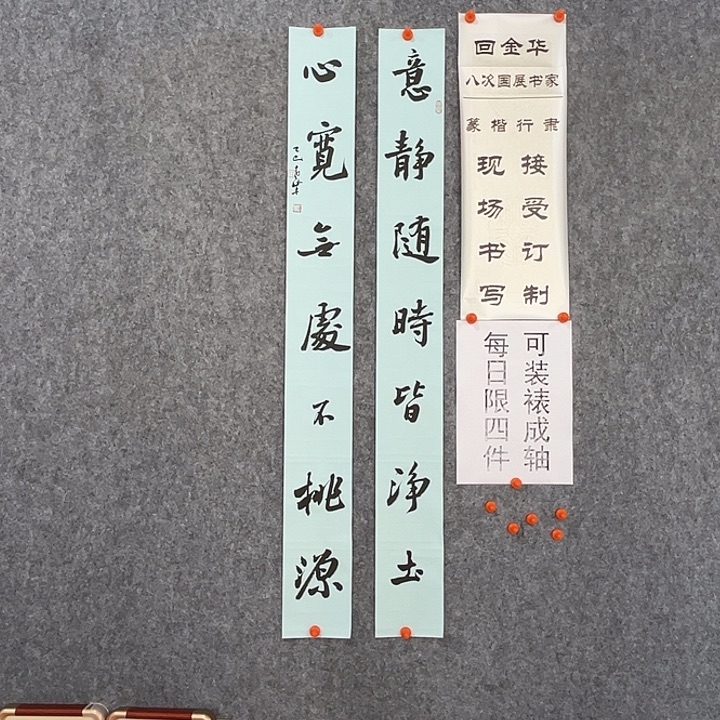 意静随時皆浄土
心寬無處不桃源
乙巳金华
回金华
八次国展书家
篆楷行隶
接受订制
现场书写
可装裱成轴
每日限四件